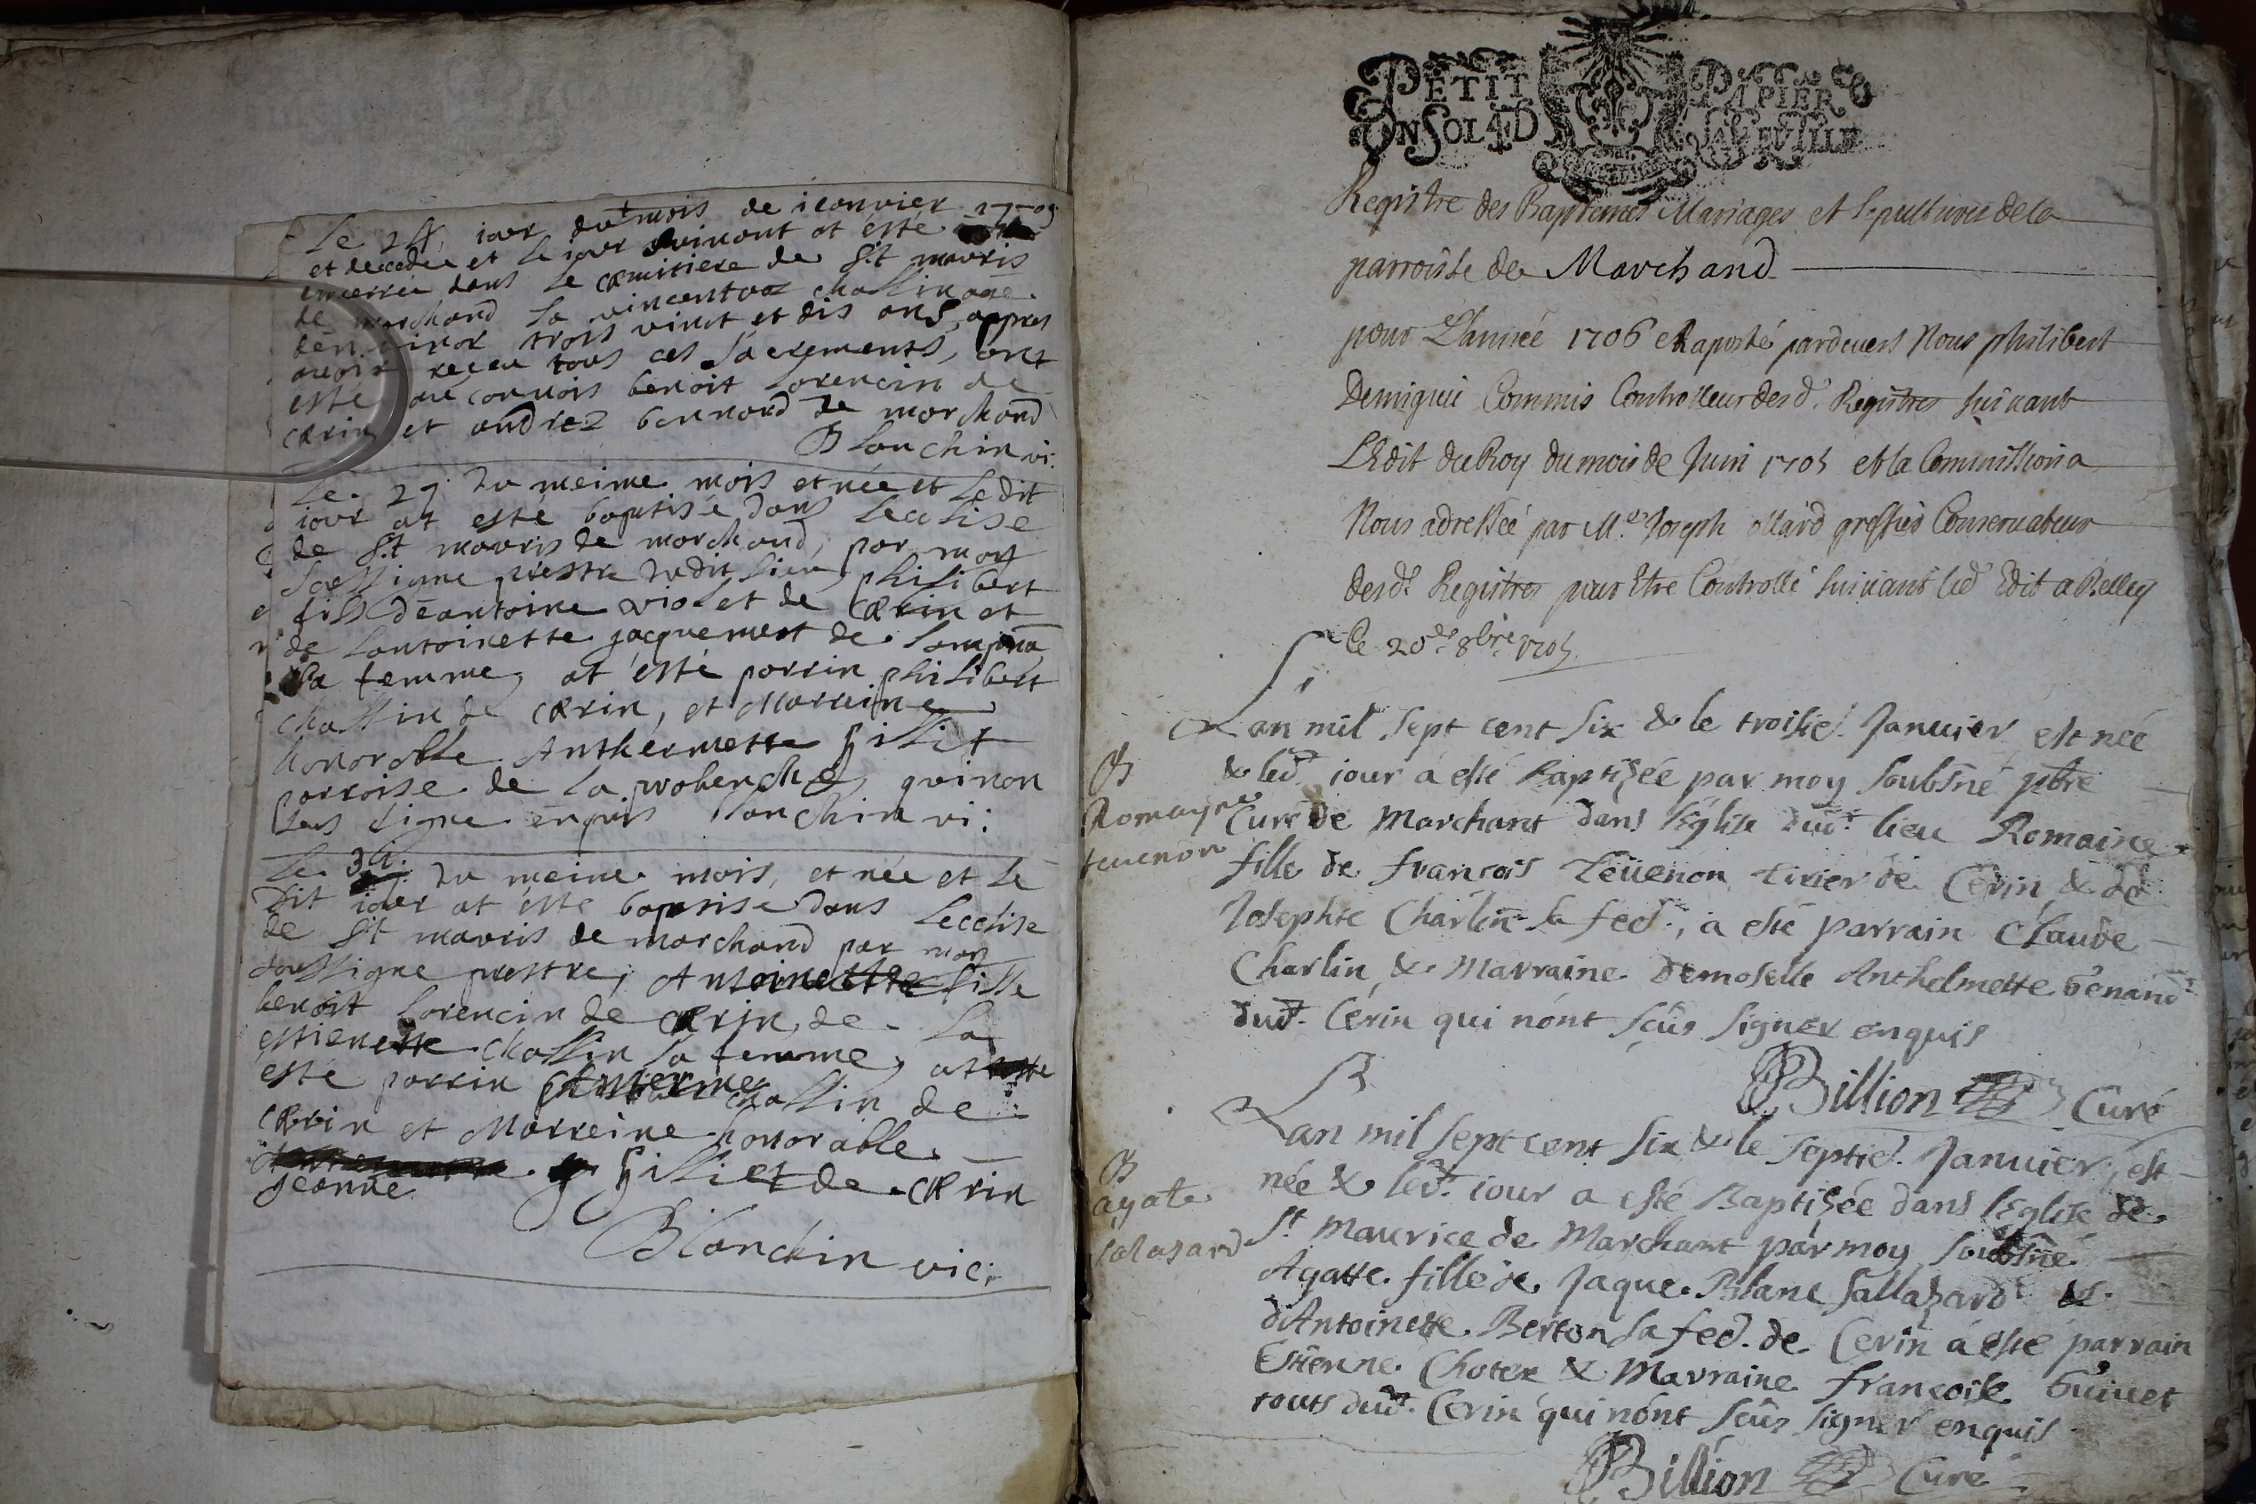 Le 24 iour du mois de ianvier 1705
et decedee et le iour suivont at ésté
enterree dans le cemitiere de st mauris
de marchand la challin
trois vinct et dis ans appres
avoir reçeu tous ces sacrements, ont
esté au convois benoit lorencin de
cerin et andrez bonnard de marchand
Blanchin vi.
Le 29 du meime mois et née et le dit
iour at esté baptisé dans leclise
de st mauris de marchand, par moy
soussigne prestre dudit lieu, philibert
fils déantoine violet de cerin et
de lantoinette jacquemet de
sa femme, at ésté parrin philibert
challin de cerin, et Marreine
honorable Anthermette gilliet
parroise de la qui non
seus signe enquis Blanchin vi:
Le 31. du meime mois, et née et le
dit iour at ésté baptisé dans leclise
de st mauris de marchand par moy
soussigne prestre, Antoinette fille
benoit lorencin de cerin, de la
estienette challin sa femme, at
ésté parrin Anterme challin de
cerin et Marreine honorable
jeanne gilliet de cerin
Blanchin vic:
PETIT PAPIER
UN SOL 4 D LA FEUILLE
Registre des Baptemes Mariages et sepultures de la
parroisse de Marchand
pour L'année 1706 et Raporté pardevers Nous philibert
Demiguii Commis Controlleur desd. Registres suivant
L'Edit du Roy du mois de Juin 1705 et la Commission a
Nous adressée par Me Joseph ollard greffier Conservateur
desd. Registres pour Etre Controllé suivant led. Edit a Belley
Ce 20de 8bre 1705
Lan mil sept cent six & le troisie. Januier est née
& led. iour a esté Baptisée par moy soubsné ptre
B
Romayne
teuenon
Curé de Marchant dans l'église dud. lieu Romaine
fille de francois Teüenon tixier de Cerin & de
Josephte Charlin sa fed., a esté parrain Claude
Charlin, & Marraine demoselle Anthelmette bénand
dud. Cérin qui nónt sçûs signer enquis
Billion Curé
Lan mil sept cent six & le septie. Januier, est
née & led. iour a esté Baptisée dans l'Eglise de
B
agate
salasard
St Maurice de Marchant par moy soubsné
Agatte fille de Jaque Blanc sallazard &
d'Antoinette Berton sa fed. de Cerin a esté parrain
Estienne Choter & Marraine francoise buiuet
touts dud. Cerin qui nónt sçûs signer enquis
Billion Curé